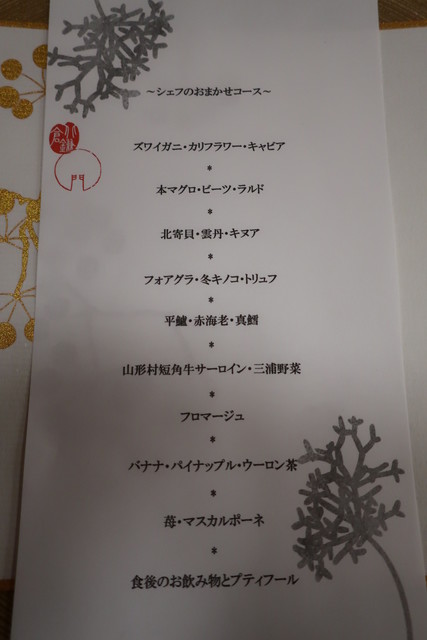 ～シェフのおまかせコース～
ズワイガニ・カリフラワー・キャビア
*
本マグロ・ビーツ・ラルド
*
北寄貝・雲丹・キヌア
*
フォアグラ・冬キノコ・トリュフ
*
平鱸・赤海老・真鱈
*
山形村短角牛サーロイン・三浦野菜
*
フロマージュ
*
バナナ・パイナップル・ウーロン茶
*
苺・マスカルポーネ
*
食後のお飲み物とプティフール
門